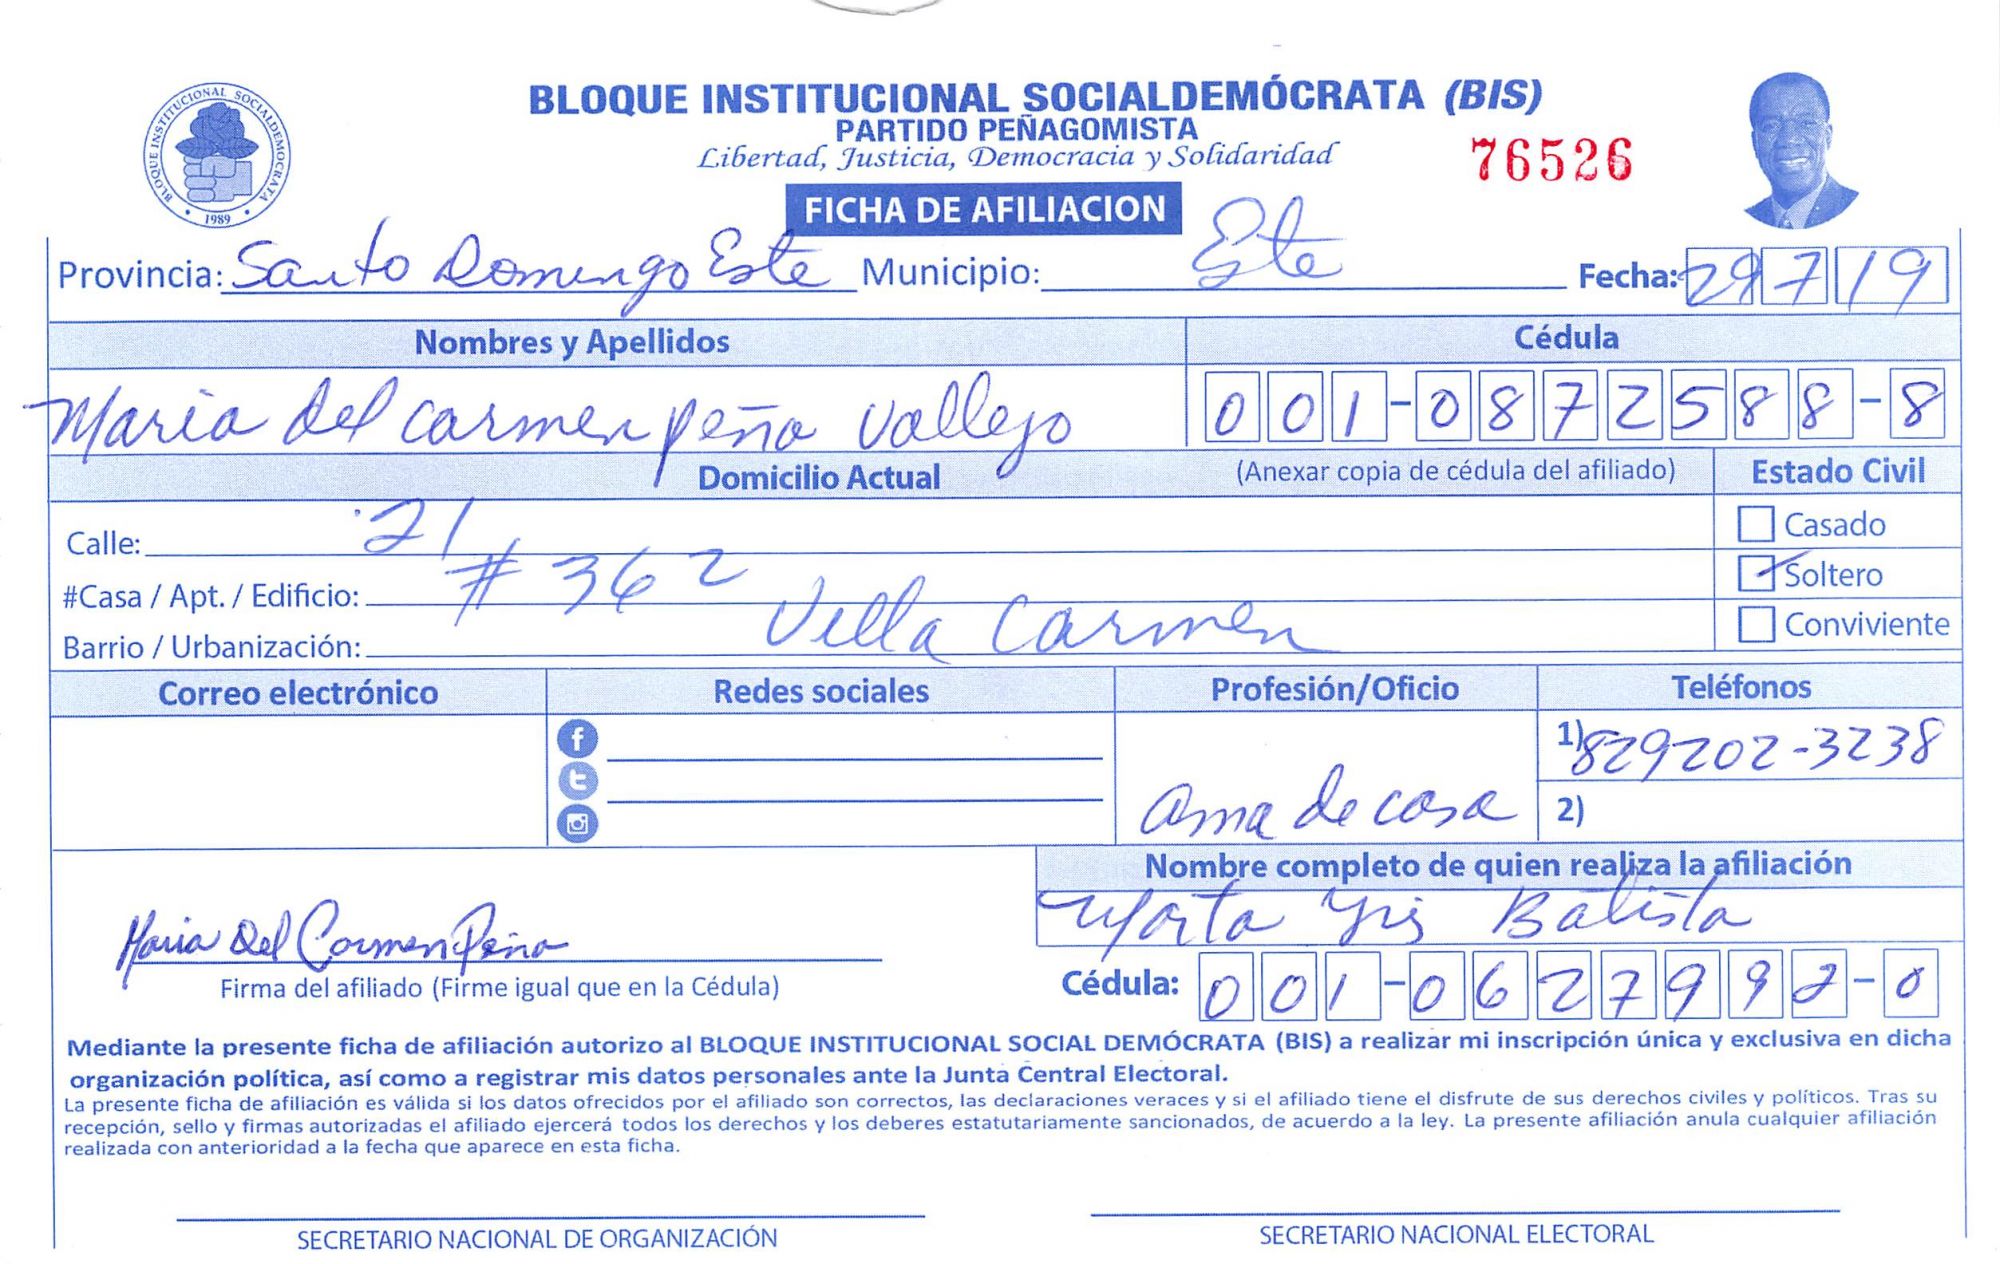 BLOQUE INSTITUCIONAL SOCIALDEMÓCRATA (BIS)
PARTIDO PEÑAGOMISTA
Libertad, Justicia, Democracia y Solidaridad
76526
BLOQUE INSTITUCIONAL SOCIALDEMOCRATA
1989
FICHA DE AFILIACION
Provincia: Santo Domingo Este Municipio: Este Fecha: 29 7 19
Nombres y Apellidos Cédula
Maria del carmen peña vallejo 001-0872588-8
Domicilio Actual (Anexar copia de cédula del afiliado) Estado Civil
Calle: 21 Casado
#Casa / Apt. / Edificio: # 362 Soltero
Barrio / Urbanización: Villa Carmen Conviviente
Correo electrónico Redes sociales Profesión/Oficio Teléfonos
1) 829202-3238
ama de casa 2)
Nombre completo de quien realiza la afiliación
Maria Del Carmen Peña Marta Yris Batista
Firma del afiliado (Firme igual que en la Cédula) Cédula: 001-0627992-0
Mediante la presente ficha de afiliación autorizo al BLOQUE INSTITUCIONAL SOCIAL DEMÓCRATA (BIS) a realizar mi inscripción única y exclusiva en dicha
organización política, así como a registrar mis datos personales ante la Junta Central Electoral.
La presente ficha de afiliación es válida si los datos ofrecidos por el afiliado son correctos, las declaraciones veraces y si el afiliado tiene el disfrute de sus derechos civiles y políticos. Tras su
recepción, sello y firmas autorizadas el afiliado ejercerá todos los derechos y los deberes estatutariamente sancionados, de acuerdo a la ley. La presente afiliación anula cualquier afiliación
realizada con anterioridad a la fecha que aparece en esta ficha.
SECRETARIO NACIONAL DE ORGANIZACIÓN SECRETARIO NACIONAL ELECTORAL